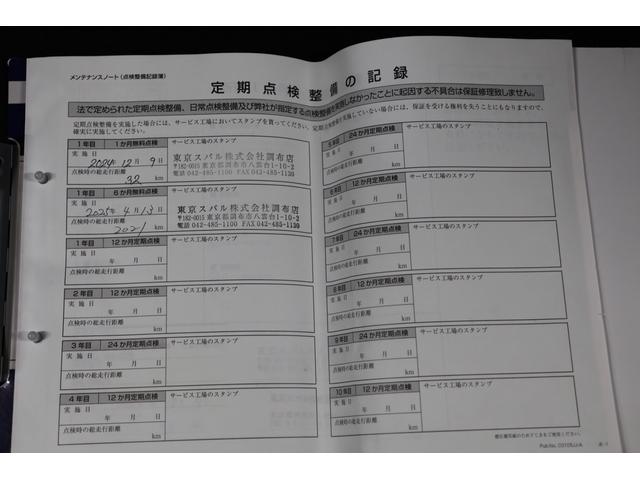 メンテナンスノート（点検整備記録簿）
定期点検整備の記録
法で定められた定期点検整備、日常点検整備及び弊社が指定する点検整備を実施しなかったことに起因する不具合は保証修理致しません。
定期点検整備を実施した場合には、サービス工場においてスタンプを貰ってください。定期点検整備を実施していない場合には、保証を受ける権利を失うこともありますので、
確実に実施してください。
1年目 1か月無料点検
サービス工場のスタンプ
実施日
2024年12月9日
点検時の総走行距離
32 km
東京スバル株式会社調布店
〒182-0015 東京都調布市八雲台1-10-2
電話 042-485-1100 FAX 042-485-1130
1年目 6か月無料点検
サービス工場のスタンプ
実施日
2025年4月13日
点検時の総走行距離
2021 km
東京スバル株式会社調布店
〒182-0015 東京都調布市八雲台1-10-2
電話 042-485-1100 FAX 042-485-1130
1年目 12か月定期点検
サービス工場のスタンプ
実施日
年 月 日
点検時の総走行距離
km
2年目 12か月定期点検
サービス工場のスタンプ
実施日
年 月 日
点検時の総走行距離
km
3年目 24か月定期点検
サービス工場のスタンプ
実施日
年 月 日
点検時の総走行距離
km
4年目 12か月定期点検
サービス工場のスタンプ
実施日
年 月 日
点検時の総走行距離
km
5年目 24か月定期点検
サービス工場のスタンプ
実施日
年 月 日
点検時の総走行距離
km
6年目 12か月定期点検
サービス工場のスタンプ
実施日
年 月 日
点検時の総走行距離
km
7年目 24か月定期点検
サービス工場のスタンプ
実施日
年 月 日
点検時の総走行距離
km
8年目 12か月定期点検
サービス工場のスタンプ
実施日
年 月 日
点検時の総走行距離
km
9年目 24か月定期点検
サービス工場のスタンプ
実施日
年 月 日
点検時の総走行距離
km
10年目 12か月定期点検
サービス工場のスタンプ
実施日
年 月 日
点検時の総走行距離
km